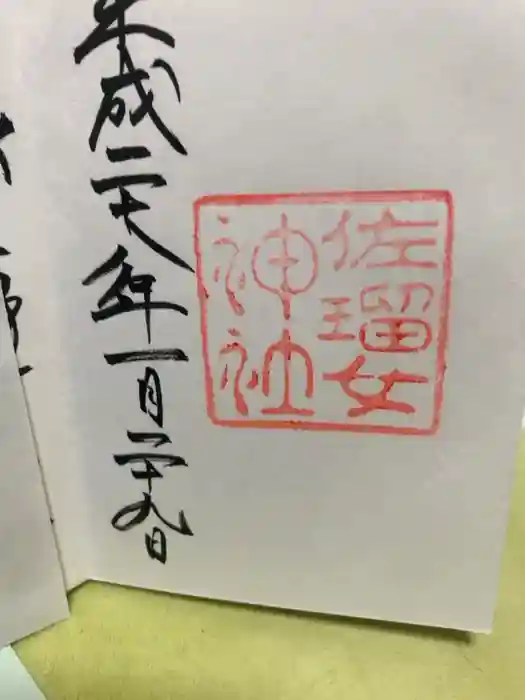 佐瑠女
神社
平成二十八年一月二十九日